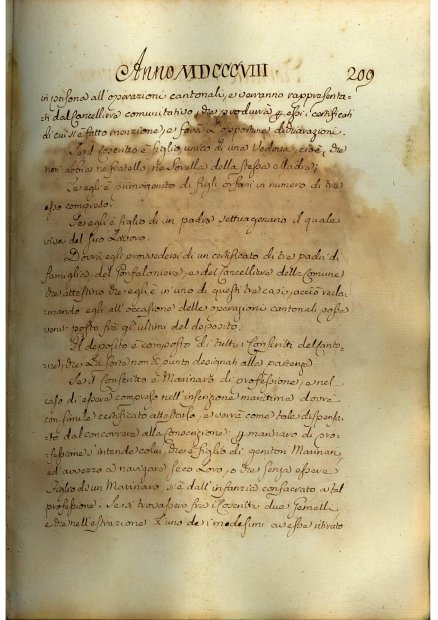 Anno MDCCCVIII 209
in persona all'operazioni cantonali, e verranno rappresenta=
ti dal Cancelliere comunitativo, che produrrà gl'essi i certificati
di cui si è fatto menzione, e farà le opportune dichiarazioni.
Se il Coscritto è figlio unico di una Vedova, cioè, che
non abbia nè fratello nè Sorella della stessa Madre;
Se egli è primogenito di figli orfani in numero di tre
esso compreso.
Se egli è figlio di un padre settuagenario il quale
vive del suo Lavoro.
Dovrà egli provvedersi di un certificato di tre padri di
famiglia, dal Gonfaloniere, e del Cancelliere della Comune
che attestino che egli è in uno di questi tre casi, acciò recla=
mando egli all'occasione delle operazioni cantonali possa
venir posto fra gl'ultimi del deposito.
Il deposito è composto di tutti i Coscritti del Canto=
ne, che La sorte non à punto designati alla partenza.
Se il Conscritto è Marinaro di professione, e nel
caso di essere compreso nell'inscrizione marittima dovrà
con simile certificato attestarlo, e verrà come tale dispensa=
to dal concorrere alla Conscrizione; per marinaro di pro=
fessione s'intende colui, che è figlio di genitori Marinari,
ed avvezzo a navigare seco loro, o che senza essere
figlio di un Marinaro si è dall'infanzia consacrato a tal
professione. Se si trovassero fra i Coscritti due Gemelli,
e che nell'estrazione L'uno de i medesimi avesse ritirato